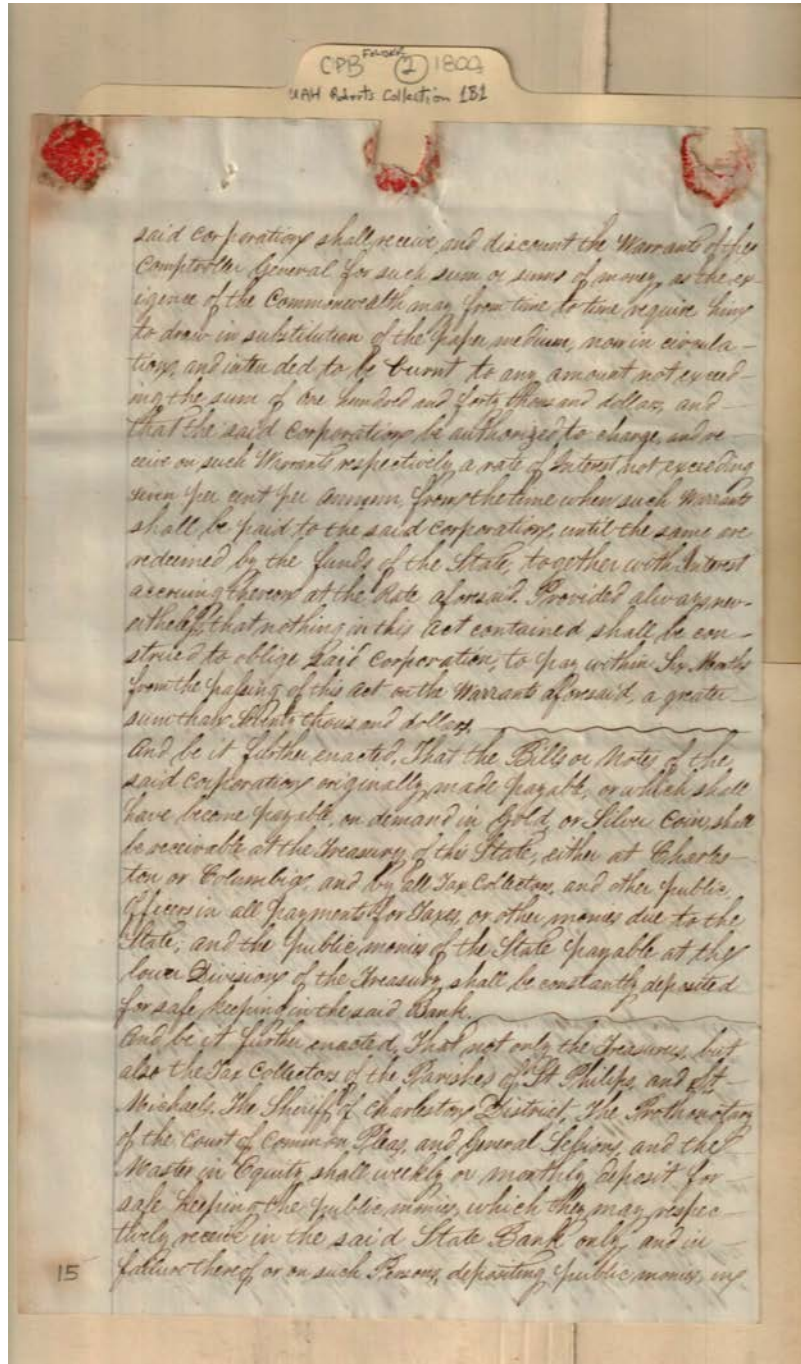 CPB FOLDER 2 1802
UAH Roberts Collection 1B1
said Corporation shall receive and discount the Warrants of the
Comptroller General for such sum or sums of money, as the ex-
igence of the Commonwealth may from time to time require him
to draw in substitution of the paper medium, now in circula-
tion, and intended to be burnt to any amount not exceed-
ing the sum of one hundred and forty thousand dollars, and
that the said Corporation be authorized to charge, and re-
ceive on such Warrants respectively a rate of Interest not exceeding
seven per cent per Annum, from the time when such Warrants
shall be paid to the said Corporation, until the same are
redeemed by the funds of the State, together with Interest
accruing thereon at the Rate aforesaid. Provided always nev-
ertheless, that nothing in this Act contained shall be con-
strued to oblige said Corporation, to pay within Six Months
from the passing of this Act on the Warrants aforesaid, a greater
sum than Seventy thousand dollars.
And be it further enacted, That the Bills or Notes of the
said Corporation originally made payable, or which shall
have become payable, on demand in Gold, or Silver Coin, shall
be receivable at the Treasury of this State, either at Charles-
ton or Columbia, and by all Tax Collectors, and other public
Officers in all payments for Taxes, or other monies due to the
State; and the public monies of the State payable at the
lower Division of the Treasury, shall be constantly deposited
for safe keeping in the said Bank.
And be it further enacted, That not only the Treasurers, but
also the Tax Collectors of the Parishes of St. Philips, and St.
Michaels, The Sheriff of Charleston District, The Prothonotary
of the Court of Common Pleas, and General Sessions, and the
Master in Equity, shall weekly or monthly deposit for
safe keeping the public monies, which they may respec-
tively receive in the said State Bank only, and in
failure thereof or on such Persons, depositing public monies, in
15